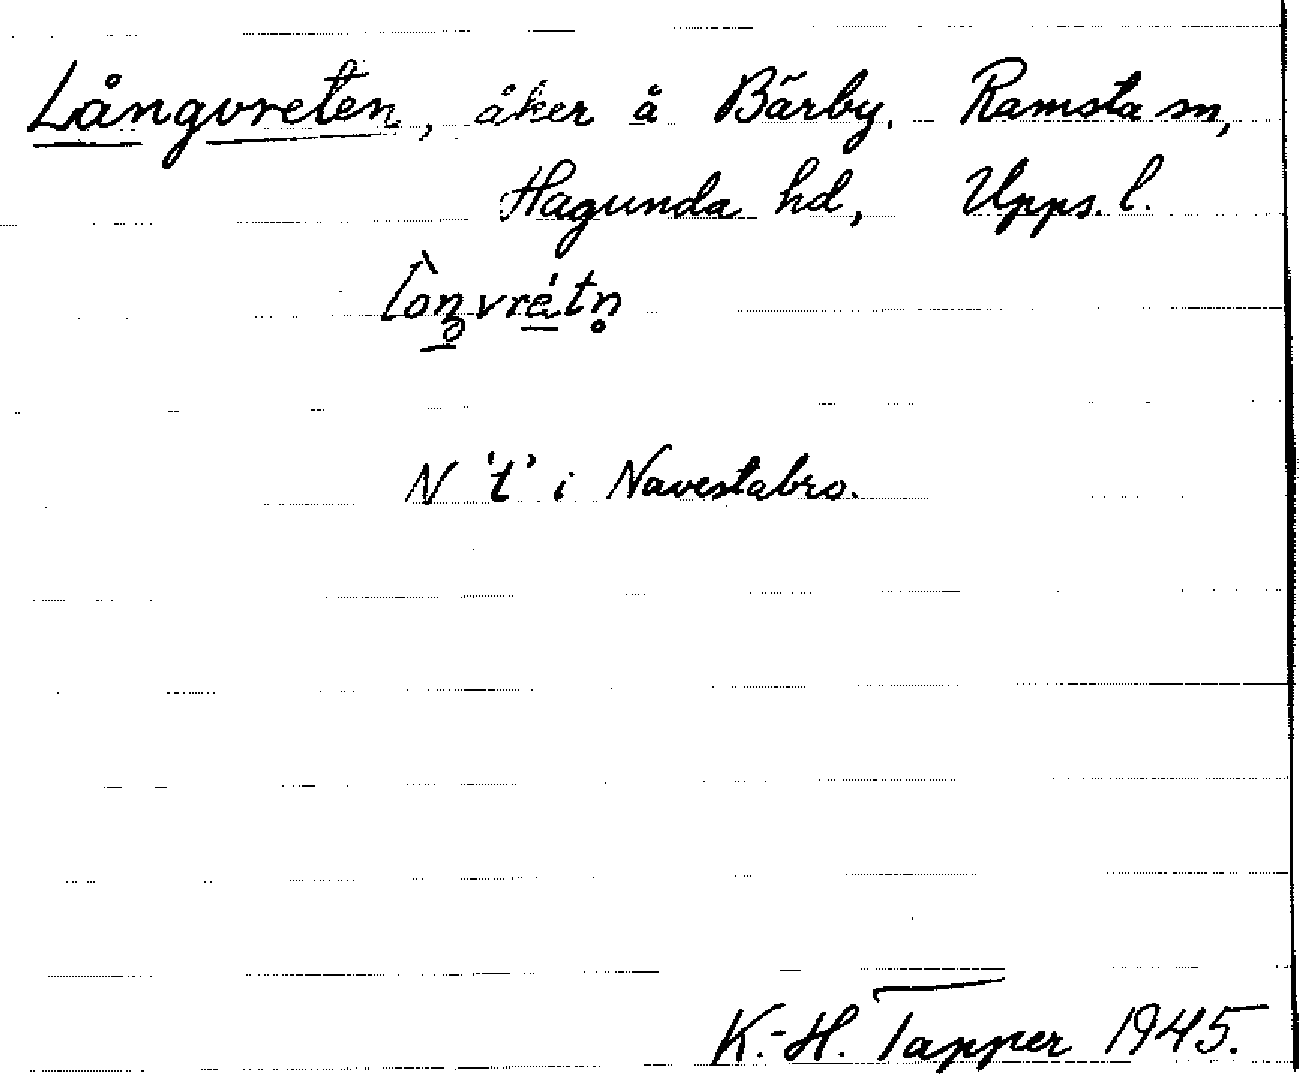 Långvreten, åker å Bärby, Ramsta sn,
Hagunda hd, Upps. l.
N 't' i Navestabro.
K.-H. Tapper 1945.